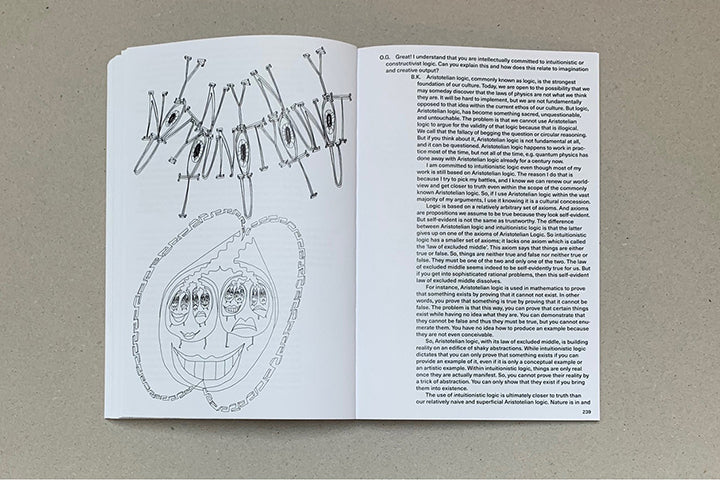 O.G. Great! I understand that you are intellectually committed to intuitionistic or
constructivist logic. Can you explain this and how does this relate to imagination
and creative output?
B.K. Aristotelian logic, commonly known as logic, is the strongest
foundation of our culture. Today, we are open to the possibility that we
may someday discover that the laws of physics are not what we think
they are. It will be hard to implement, but we are not fundamentally
opposed to that idea within the current ethos of our culture. But logic,
Aristotelian logic, has become something sacred, unquestionable,
and untouchable. The problem is that we cannot use Aristotelian
logic to argue for the validity of that logic because that is illogical.
We call that the fallacy of begging the question or circular reasoning.
But if you think about it, Aristotelian logic is not fundamental at all,
and it can be questioned. Aristotelian logic happens to work in prac-
tice most of the time, but not all of the time, e.g. quantum physics has
done away with Aristotelian logic already for a century now.
I am committed to intuitionistic logic even though most of my
work is still based on Aristotelian logic. The reason I do that is
because I try to pick my battles, and I know we can renew our world-
view and get closer to truth even within the scope of the commonly
known Aristotelian logic. So, if I use Aristotelian logic within the vast
majority of my arguments, I use it knowing it is a cultural concession.
Logic is based on a relatively arbitrary set of axioms. And axioms
are propositions we assume to be true because they look self-evident.
But self-evident is not the same as trustworthy. The difference
between Aristotelian logic and intuitionistic logic is that the latter
gives up on one of the axioms of Aristotelian Logic. So intuitionistic
logic has a smaller set of axioms; it lacks one axiom which is called
the 'law of excluded middle'. This axiom says that things are either
true or false. So, things are neither true and false nor neither true or
false. They must be one of the two and only one of the two. The law
of excluded middle seems indeed to be self-evidently true for us. But
if you get into sophisticated rational problems, then this self-evident
law of excluded middle dissolves.
For instance, Aristotelian logic is used in mathematics to prove
that something exists by proving that it cannot not exist. In other
words, you prove that something is true by proving that it cannot be
false. The problem is that this way, you can prove that certain things
exist while having no idea what they are. You can demonstrate that
they cannot be false and thus they must be true, but you cannot enu-
merate them. You have no idea how to produce an example because
they are not even conceivable.
So, Aristotelian logic, with its law of excluded middle, is building
reality on an edifice of shaky abstractions. While intuitionistic logic
dictates that you can only prove that something exists if you can
provide an example of it, even if it is only a conceptual example or
an artistic example. Within intuitionistic logic, things are only real
once they are actually manifest. So, you cannot prove their reality by
a trick of abstraction. You can only show that they exist if you bring
them into existence.
The use of intuitionistic logic is ultimately closer to truth than
our relatively naive and superficial Aristotelian logic. Nature is in and
239